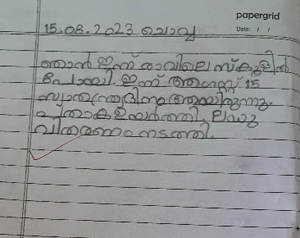 papergrid
Date: / /
15.08.2023 ചൊവ്വ
ഞാൻ ഇന്ന് രാവിലെ സ്കൂളിൽ
പോയി. ഇന്ന് ആഗസ്റ്റ് 15
സ്വാതന്ത്ര്യദിനം ആയിരുന്നു.
പതാക ഉയർത്തി, ലഡു
വിതരണം നടത്തി.